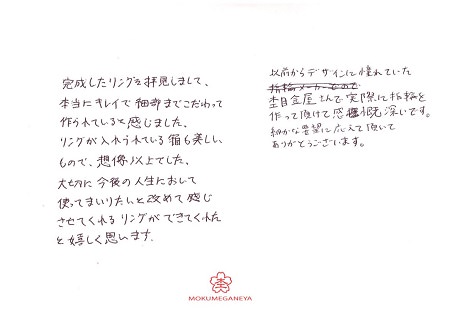 完成したリングを拝見しまして、
本当にキレイで細部までこだわって
作られていると感じました。
リングが入れられている箱も美しい
もので、想像以上でした。
大切に今後の人生において
使ってまいりたいと改めて感じ
させてくれるリングができてくれた
と嬉しく思います。
以前からデザインに憧れていた
指輪メーカーなので
杢目金屋さんで実際に指輪を
作って頂けて感慨深いです。
細かな要望に応えて頂いて
ありがとうございます。
MOKUMEGANEYA